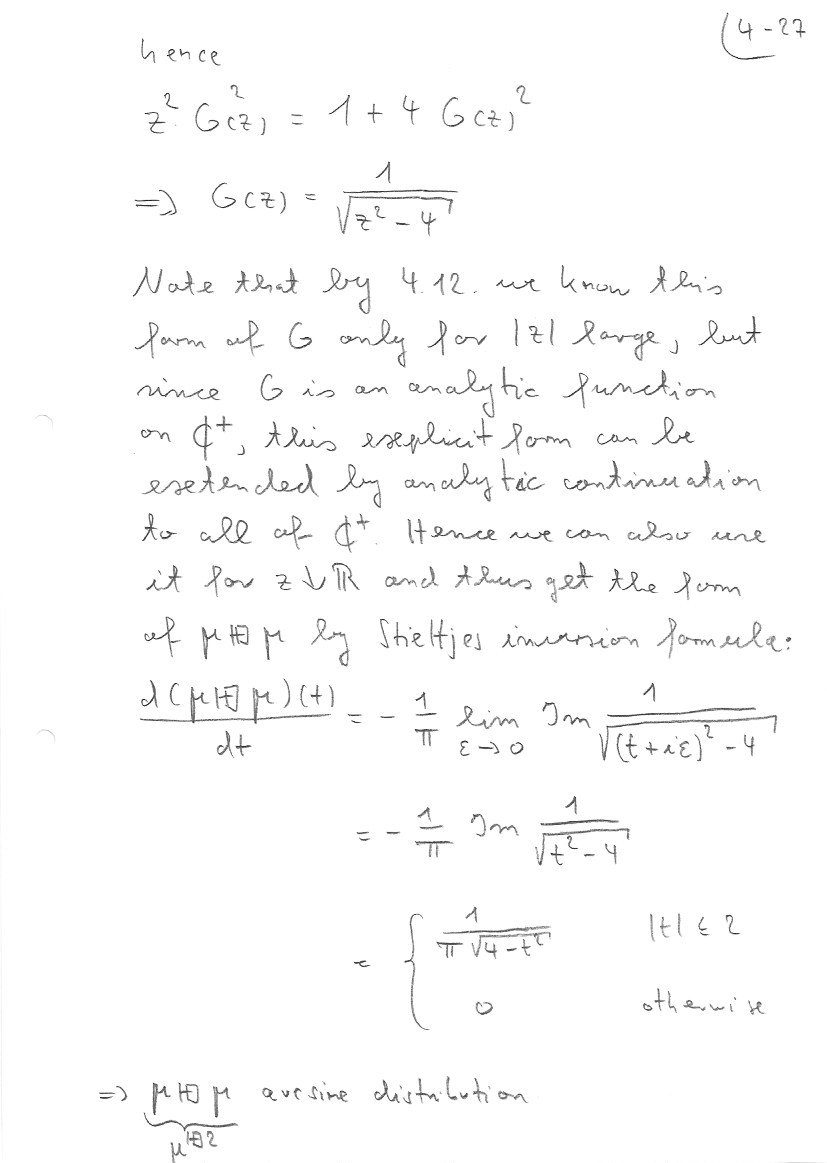 4-27
hence
z² G(z)² = 1 + 4 G(z)²
=> G(z) = 1/√(z² - 4)
Note that by 4.12. we know this
form of G only for |z| large, but
since G is an analytic function
on ℂ⁺, this explicit form can be
extended by analytic continuation
to all of ℂ⁺. Hence we can also use
it for z ↓ ℝ and thus get the form
of μ ⊞ μ by Stieltjes inversion formula:
d(μ ⊞ μ)(t)/dt = - 1/π lim_{ε→0} Im 1/√((t+iε)² - 4)
= - 1/π Im 1/√(t² - 4)
= { 1/(π√(4-t²)) |t| ≤ 2
0 otherwise
=> μ ⊞ μ arcsine distribution
μ^{⊞2}